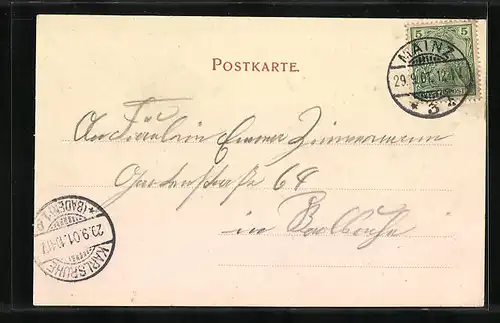 5 5
MAINZ
POSTKARTE.
29.9.01.
* 3 *
An Fräulein Emma Zimmermann
Gartenstraße 64
in Karlsruhe
* (BADEN)
29.9.01.
KARLSRUHE